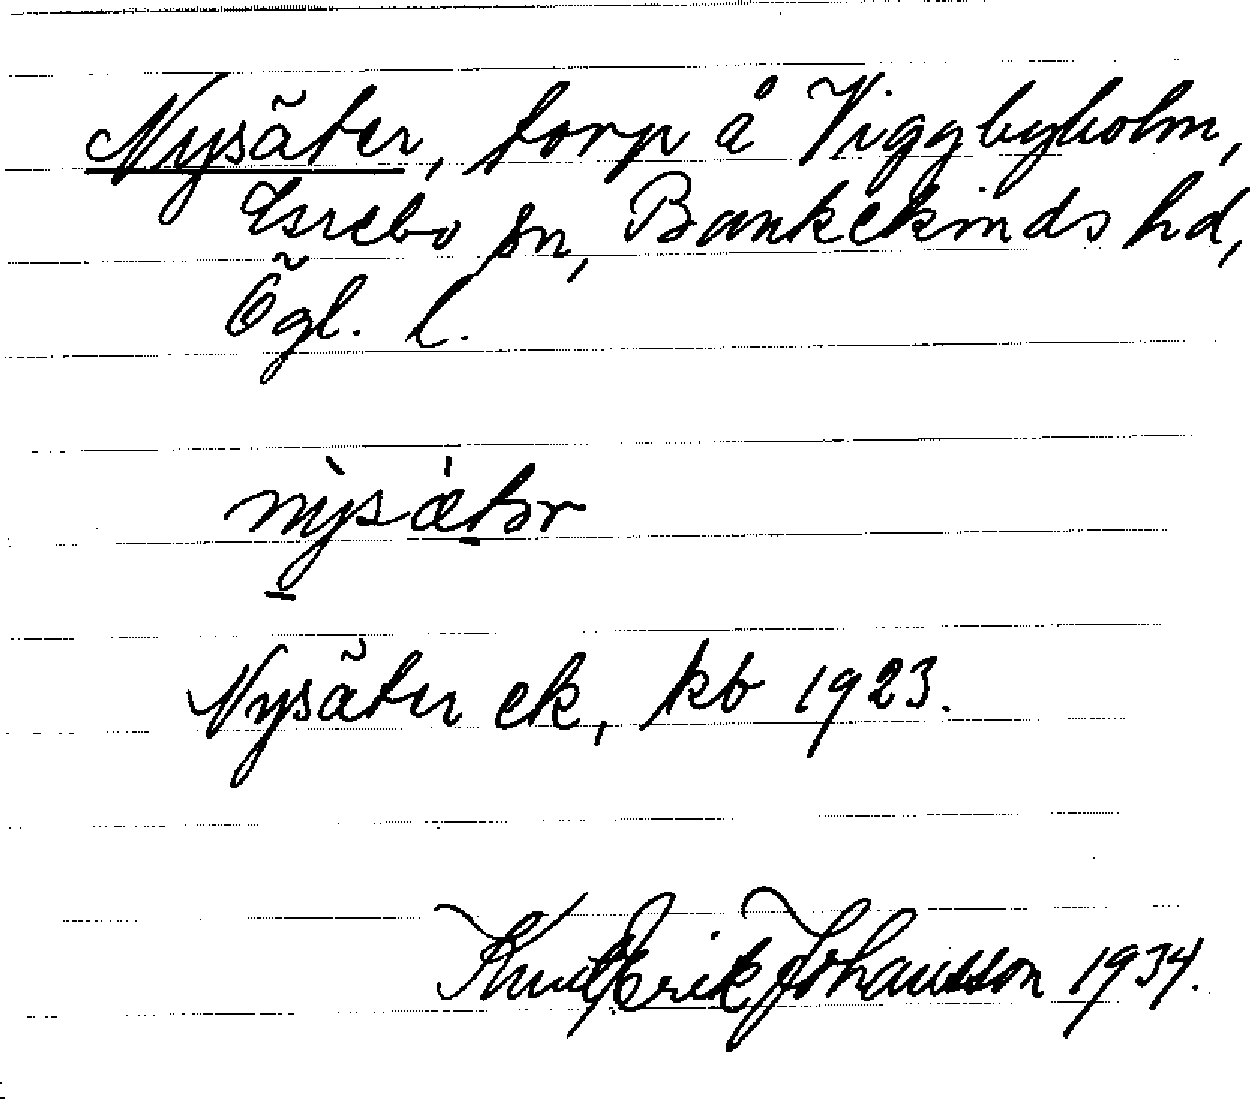 Nysäter, torp å Viggbyholm,
Esrebo sn, Bankekinds hd,
Ögl. l.
nỳsǽtər
Nysäter ek, kb 1923.
Knut Erik Johansson 1934.